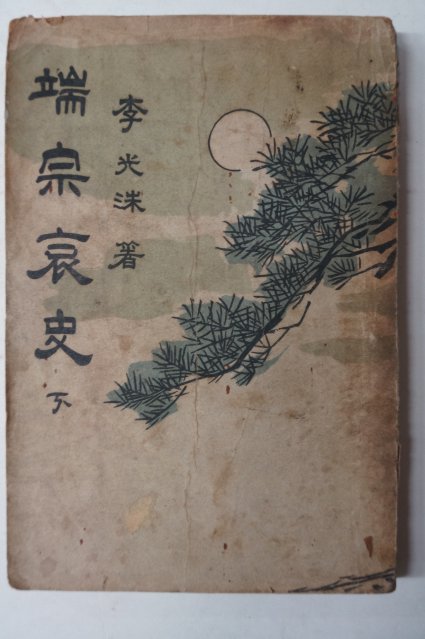 李光洙著
端宗哀史 下